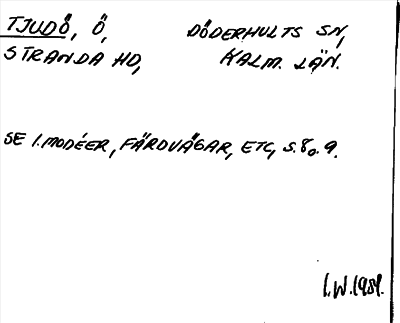 TJUDÖ, Ö, DÖDERHULTS SN,
STRANDA HD, KALM. LÄN.
SE I. MODÉER, FÄRDVÄGAR, ETC, S. 8 o. 9.
I.W.1981.